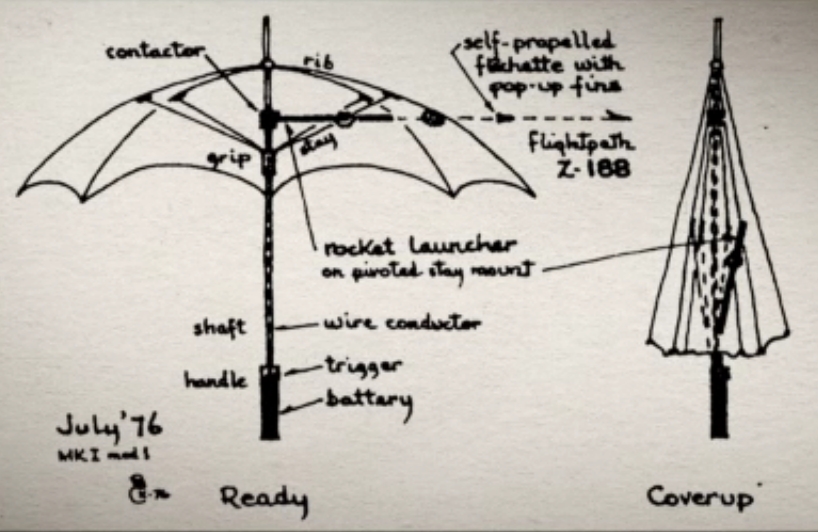 contactor
rib
self-propelled
flechette with
pop-up fins
grip
stay
flightpath
Z-188
rocket launcher
on pivoted stay mount
shaft
wire conductor
trigger
handle
battery
July '76
MK I mod 1
Ready
Coverup